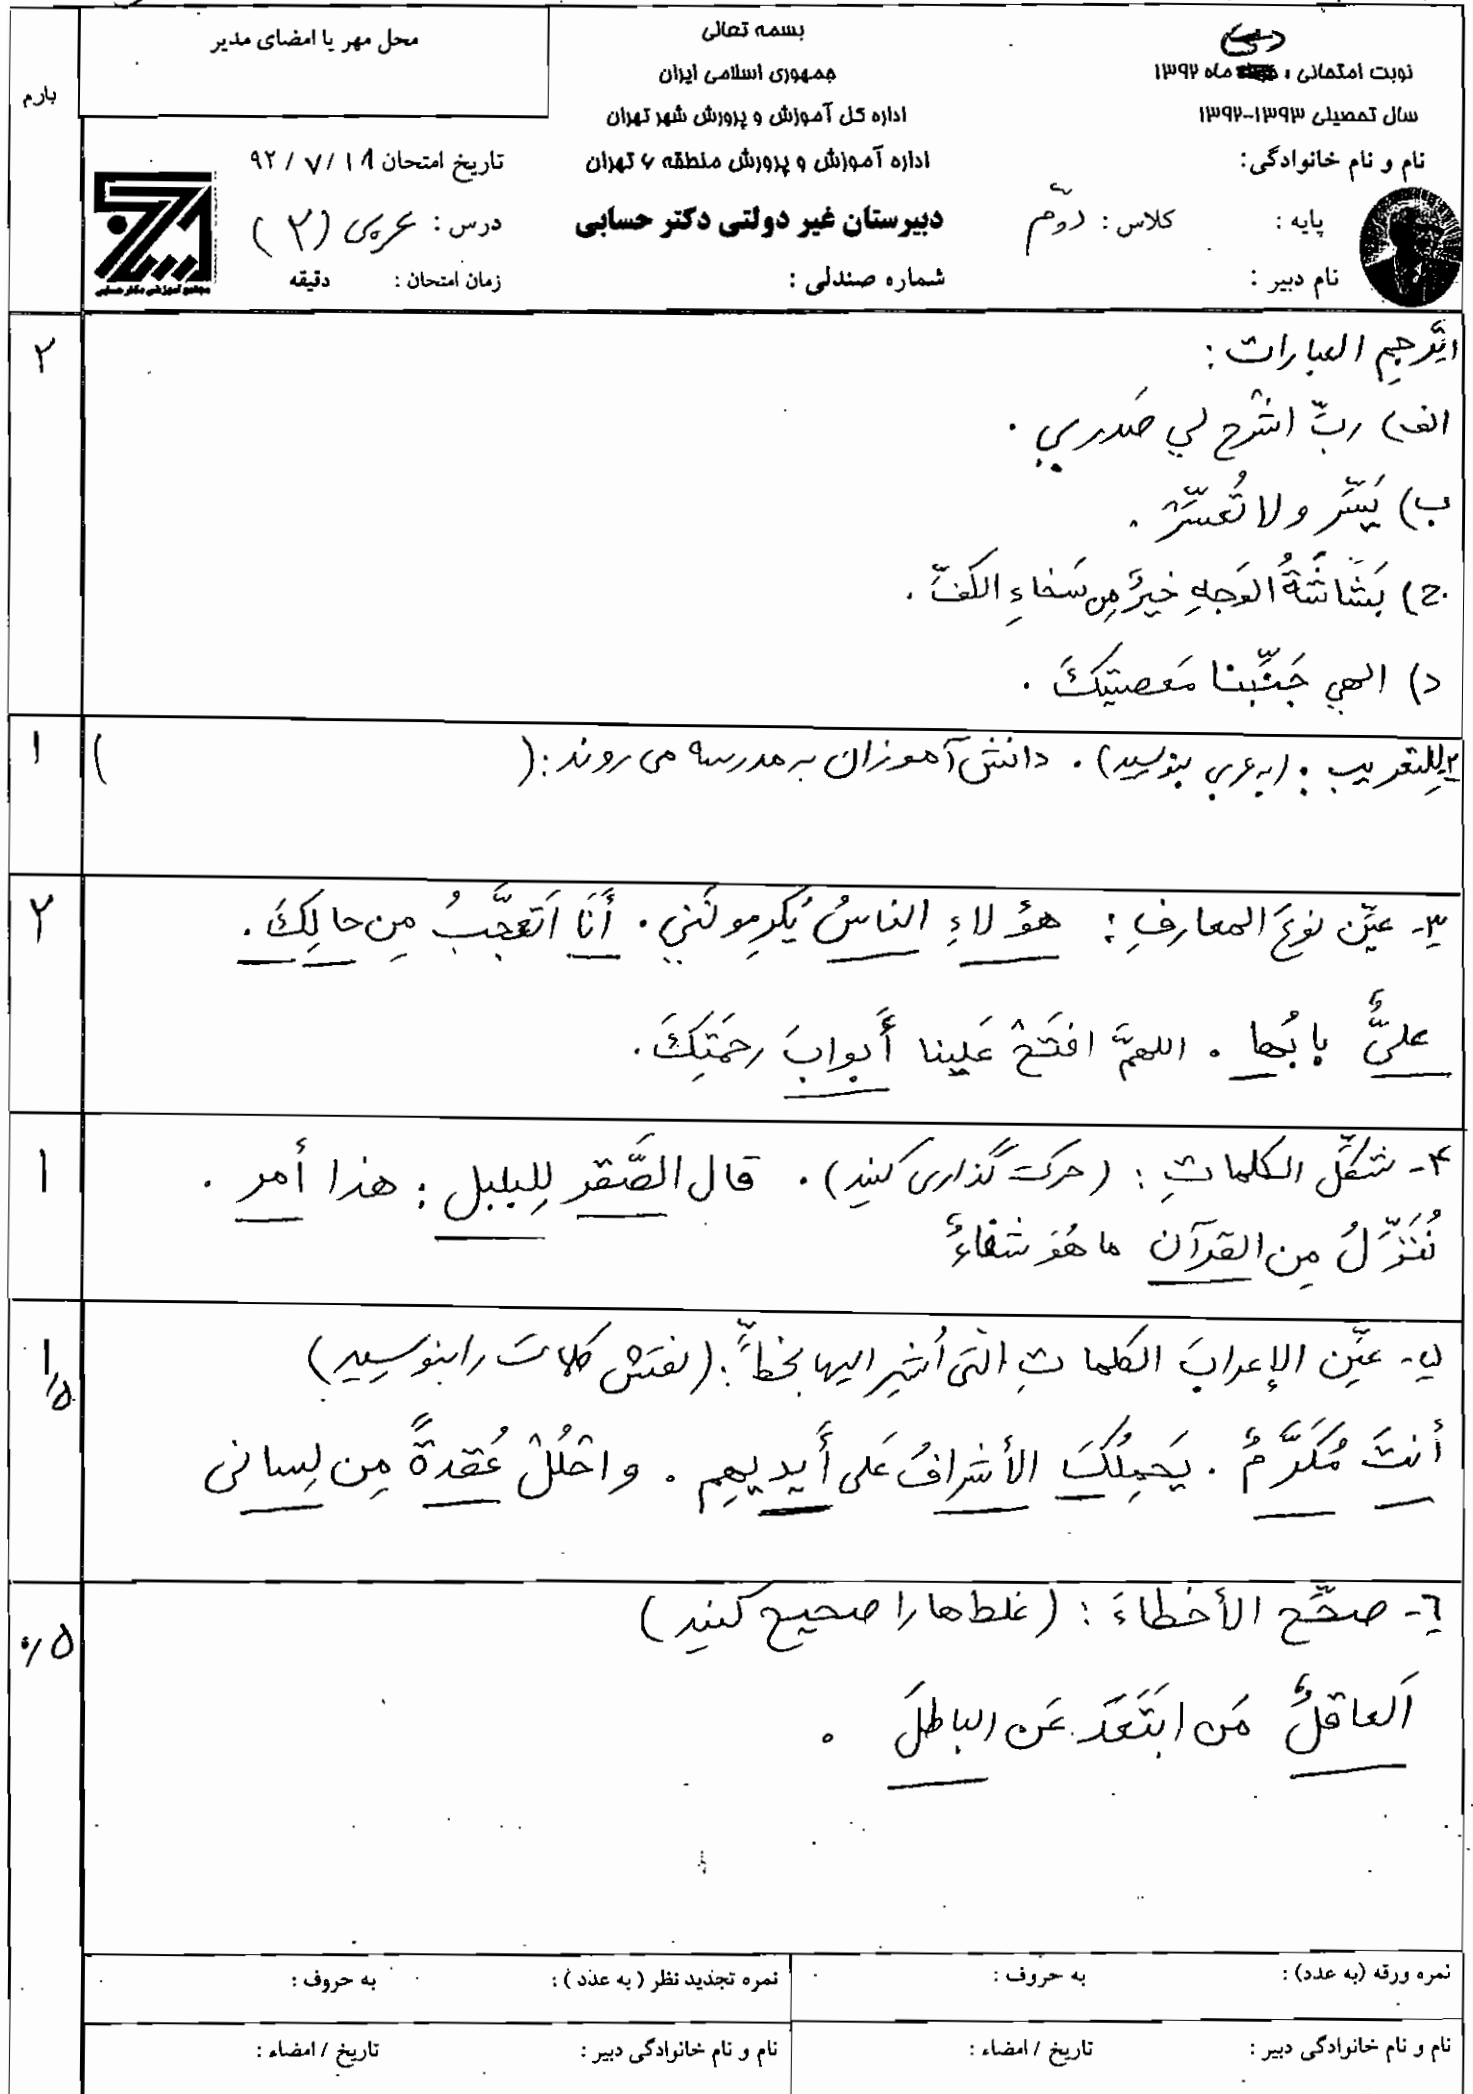 بسمه تعالی
جمهوری اسلامی ایران
اداره کل آموزش و پرورش شهر تهران
اداره آموزش و پرورش منطقه ۶ تهران
دبیرستان غیر دولتی دکتر حسابی
شماره صندلی :
نوبت امتحانی : ماه ۱۳۹۲
سال تحصیلی ۱۳۹۳-۱۳۹۲
نام و نام خانوادگی:
پایه : کلاس : دوّم
نام دبیر :
محل مهر یا امضای مدیر
تاریخ امتحان ۹۲ / ۷ / ۱۸
درس : عربی (۲)
زمان امتحان : دقیقه
مجتمع آموزشی دکتر حسابی
بارم
۱ـ تَرجِمِ العبارات : ۲
الف) ربِّ اشْرح لي صَدري .
ب) يَسِّر و لا تُعسِّرْ .
ج) بَشاشَةُ الوَجهِ خيرٌ مِن سَخاءِ الكَفّ .
د) الهي جَنِّبنا مَعصيتِكَ .
۲ـ لِلتعریب : (به عربی بنویسید) . دانش آموزان به مدرسه می روند :( ) ۱
۳ـ عيِّن نوعَ المعارفِ : هؤلاءِ الناسُ يُكرِمونَني . أَنَا اَتَعجَّبُ مِن حالِكَ . ۲
عليٌّ بابُها . اللهمَّ افتَحْ عَلينا أَبوابَ رحمَتِكَ .
۴ـ شكِّل الكلماتِ : (حرکت گذاری کنید) . قال الصَّقر لِلبلبل : هذا أمر . ۱
نُنَزِّلُ مِن القرآن ما هُوَ شفاءٌ
۵ـ عيِّن الإعرابَ الكلماتِ الّتی اُشير اليها بخطٍّ : (نقش کلمات را بنویسید) ۱/۵
أنتَ مُكَرَّمٌ . يَحمِلُكَ الأشرافُ عَلى أَيديهِم . و احْلُلْ عُقدةً مِن لِسانی
٦ـ صحِّح الأخطاءَ : (غلط ها را صحیح کنید) ۰/۵
اَلعاقلٌ مَن ابتَعَدَ عَن الباطلَ .
نمره ورقه (به عدد) : به حروف : نمره تجدید نظر (به عدد) : به حروف :
نام و نام خانوادگی دبیر : تاریخ / امضاء : نام و نام خانوادگی دبیر : تاریخ / امضاء :